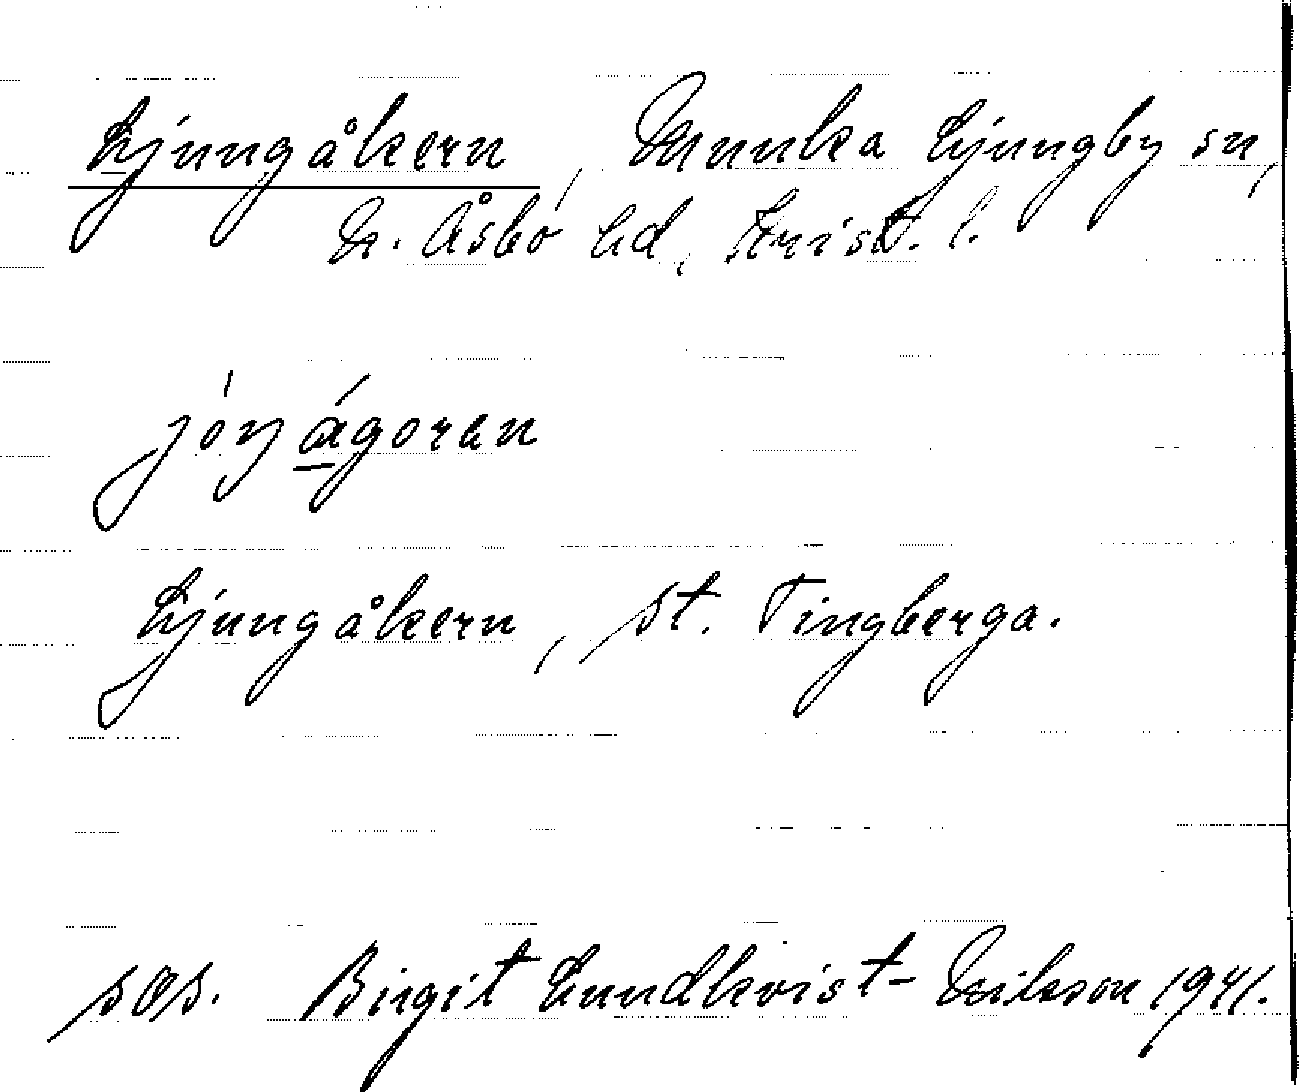 Ljungåkern, Munka Ljungby sn,
N. Åsbo hd, Krist. l.
jóŋágoren
Ljungåkern, st. Tingberga.
sos. Birgit Lundkvist-Nilsson 1941.